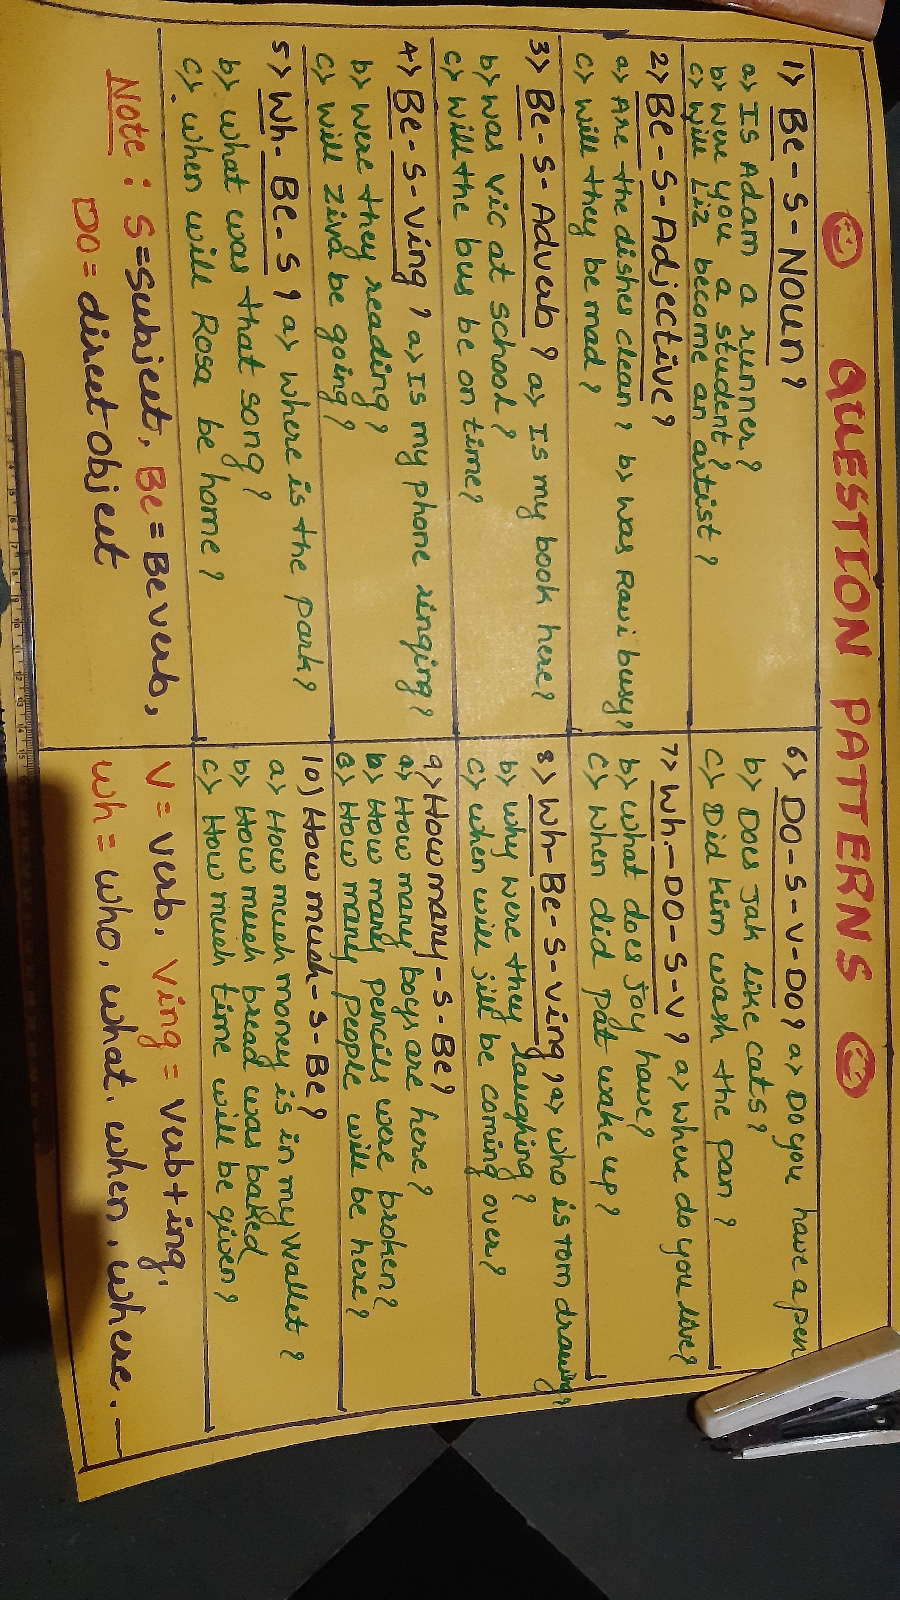 QUESTION PATTERNS
1> Be-S-Noun?
a> Is Adam a runner?
b> were you a student?
c> will Liz become an artist?
2> Be-S-Adjective?
a> Are the dishes clean? b> was Ravi busy?
c> will they be mad?
3> Be-S-Adverb? a> Is my book here?
b> was vic at school?
c> will the bus be on time?
4> Be-S-Ving? a> Is my phone ringing?
b> were they reading?
c> will Ziva be going?
5> Wh-Be-S? a> where is the park?
b> what was that song?
c> when will Rosa be home?
6> DO-S-V-DO? a> Do you have a pen
b> Does Jak like cats?
c> Did kim wash the pan?
7> Wh.-DO-S-V? a> where do you live?
b> what does joy have?
c> when did pat wake up?
8> Wh-Be-S-Ving? a> who is tom drawing?
b> why were they laughing?
c> when will jill be coming over?
9> How many-S-Be?
a> How many boys are here?
b> How many pencils were broken?
c> How many people will be here?
10) How much-S-Be?
a> How much money is in my wallet?
b> How much bread was baked
c> How much time will be given?
Note: S=subject, Be=Be verb,
DO=direct object
V=verb, Ving=verb+ing,
wh=who, what, when, where.—